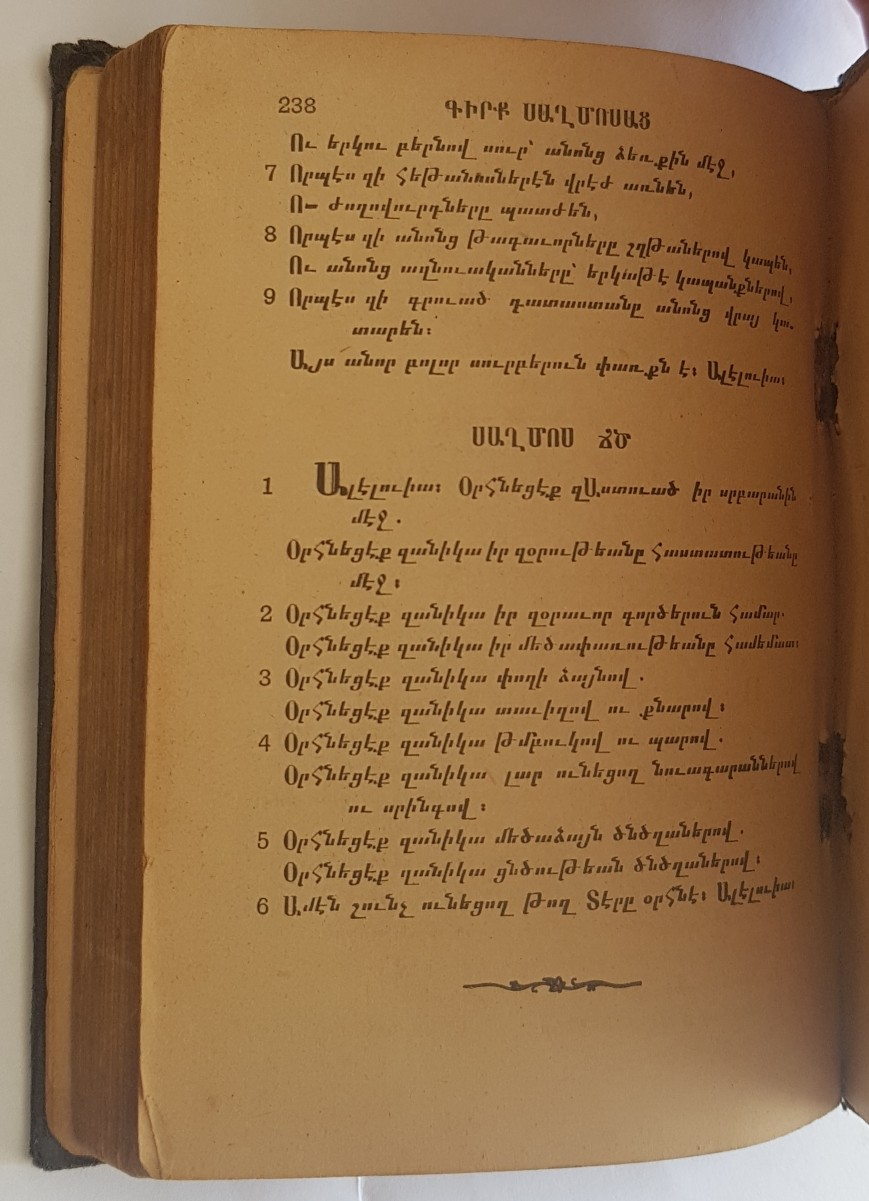 238 ԳԻՐՔ ՍԱՂՄՈՍԱՑ
Ու երկու բերնով սուր՝ անոնց ձեռքին մէջ,
7 Որպէս զի հեթանոսներէն վրէժ առնեն,
Ու ժողովուրդները պատժեն,
8 Որպէս զի անոնց թագաւորները շղթաներով կապեն,
Ու անոնց աղնուականները՝ երկաթէ կապանքներով,
9 Որպէս զի գրուած դատաստանը անոնց վրայ կա-
տարեն։
Այս անոր բոլոր սուրբերուն փառքն է։ Ալէլուիա։
ՍԱՂՄՈՍ ՃԾ
1 Ալէլուիա։ Օրհնեցէք զԱստուած իր սրբարանին
մէջ.
Օրհնեցէք զանիկա իր զօրութեանը հաստատութեանը
մէջ։
2 Օրհնեցէք զանիկա իր զօրաւոր գործերուն համար.
Օրհնեցէք զանիկա իր մեծափառութեանը համեմատ։
3 Օրհնեցէք զանիկա փողի ձայնով.
Օրհնեցէք զանիկա տաւիղով ու քնարով։
4 Օրհնեցէք զանիկա թմբուկով ու պարով.
Օրհնեցէք զանիկա լար ունեցող նուագարաններով
ու սրինգով։
5 Օրհնեցէք զանիկա մեծաձայն ծնծղաներով.
Օրհնեցէք զանիկա ցնծութեան ծնծղաներով։
6 Ամէն շունչ ունեցող թող Տէրը օրհնէ։ Ալէլուիա։